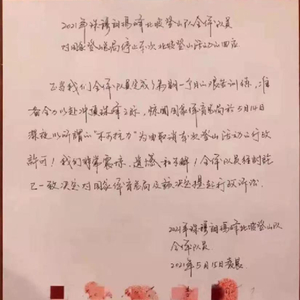 2021年珠穆朗玛峰北坡登山队全体队员
对国家登山局停止本次北坡登山活动的回应
已当我们全体队员完成了为期一个月的艰苦训练，准
备全力以赴冲顶珠峰之际，惊闻国家体育总局于5月14日
深夜以所谓的“不可抗力”为由取消本次登山活动的行政
许可！我们非常震惊、遗憾和不解！全体队员经讨论
已一致决定对国家体育总局及该决定提起行政诉讼。
2021年珠穆朗玛峰北坡登山队
全体队员
2021年5月15日